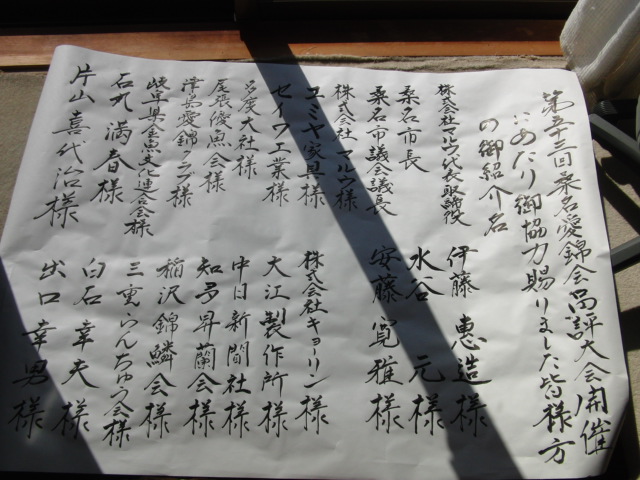 第五十三回桑名愛錦会品評大会開催
にあたり御協力賜りました皆様方
の御紹介名
株式会社マルウ代表取締役 伊藤 恵造様
桑名市長 水谷 元様
桑名市議会議長 安藤 寛雅様
株式会社 マルウ様
ユミヤ家具様 株式会社キョーリン様
セイワ工業様 大江製作所様
多度大社様 中日新聞社様
尾張優魚会様 知多昇蘭会様
津島愛錦クラブ様 稲沢錦鱗会様
岐阜県金魚文化連合会様 三重らんちゅう会様
石丸 満春様 白石 幸夫様
片山 喜代治様 出口 幸男様